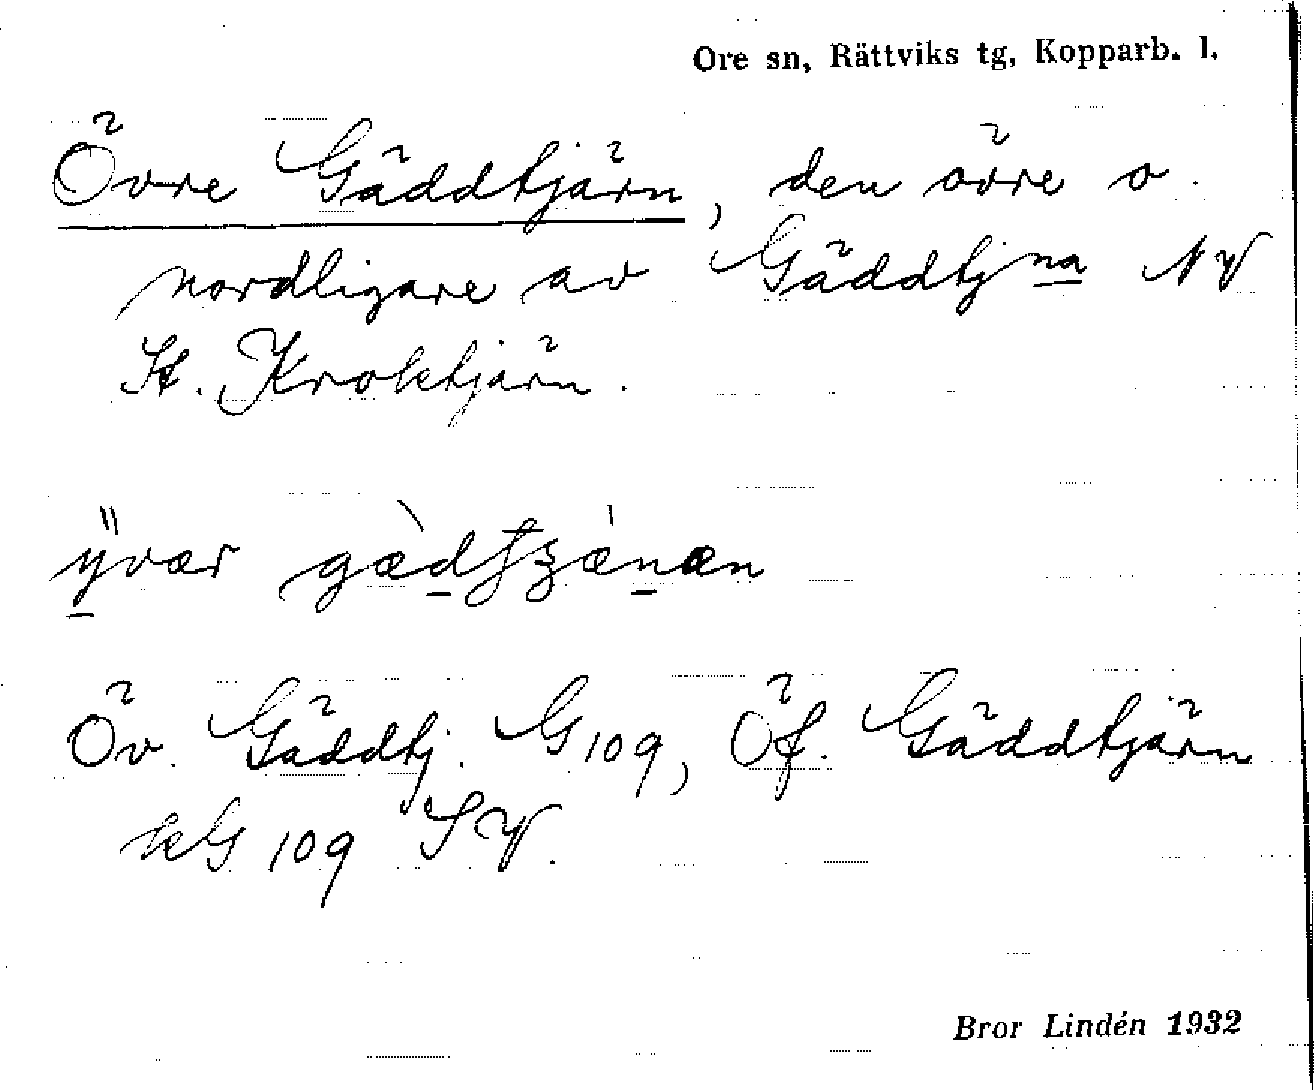 Ore sn, Rättviks tg, Kopparb. l.
Övre Gäddtjärn, den övre o.
nordligare av Gäddtjna NV
St. Kroktjärn.
ÿvær gædʃʒænæn
Öv. Gäddtj. G109, Öf. Gäddtjärn
kG 109 SV.
Bror Lindén 1932